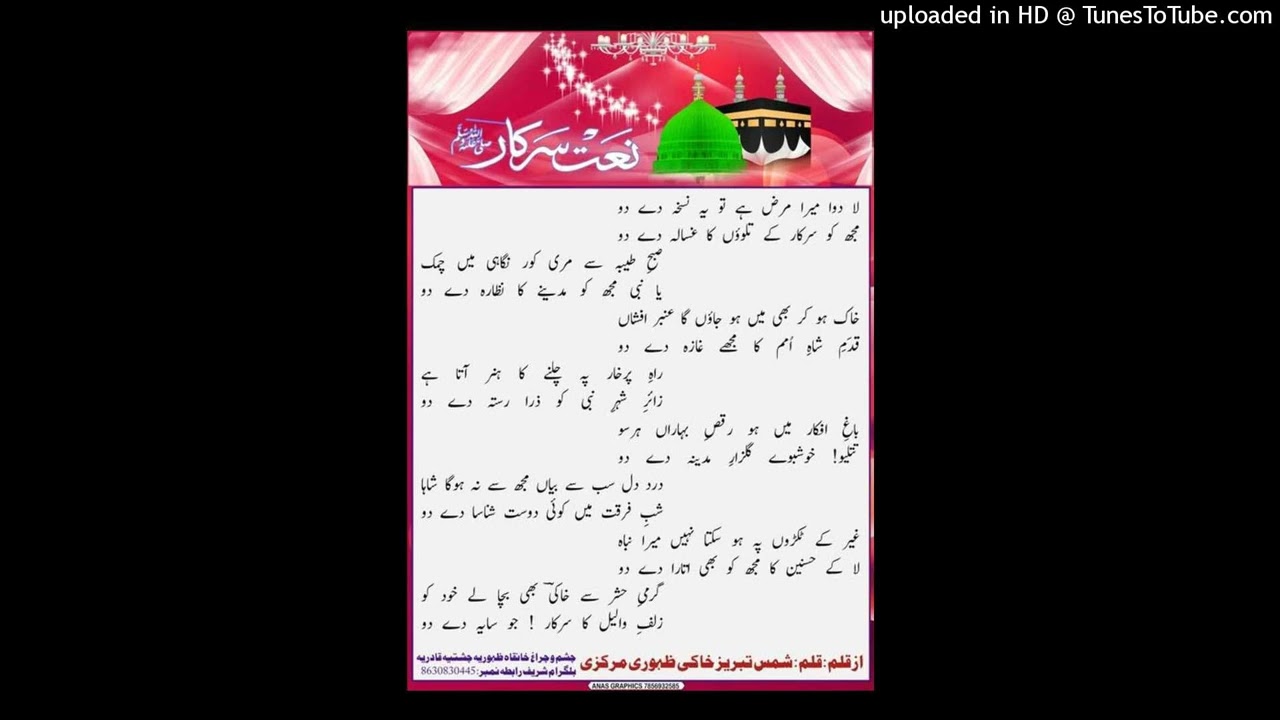 uploaded in HD @ TunesToTube.com
نعت سرکار ﷺ
لا دوا میرا مرض ہے تو یہ نسخہ دے دو
مجھ کو سرکار کے تلوؤں کا غسالہ دے دو
صبحِ طیبہ سے مری کور نگاہی میں چمک
یا نبی مجھ کو مدینے کا نظارہ دے دو
خاک ہو کر بھی میں ہو جاؤں گا عنبر افشاں
قدمِ شاہِ اُمم کا مجھے غازہ دے دو
راہِ پرخار پہ چلنے کا ہنر آتا ہے
زائرِ شہرِ نبی کو ذرا رستہ دے دو
باغِ افکار میں ہو رقصِ بہاراں ہرسو
تتلیو! خوشبوے گلزارِ مدینہ دے دو
درد دل سب سے بیاں مجھ سے نہ ہوگا شاہا
شبِ فرقت میں کوئی دوست شناسا دے دو
غیر کے ٹکڑوں پہ ہو سکتا نہیں میرا نباہ
لا کے حسنین کا مجھ کو بھی اتارا دے دو
گرمیِ حشر سے خاکیؔ بھی بچا لے خود کو
زلفِ والیل کا سرکار ! جو سایہ دے دو
از قلم: قلم: شمس تبریز خاکی ظہوری مرکزی
چشم و چراغ خانقاہ ظہوریہ چشتیہ قادریہ
بلگرام شریف رابطہ نمبر: 8630830445
ANAS GRAPHICS 7856932585